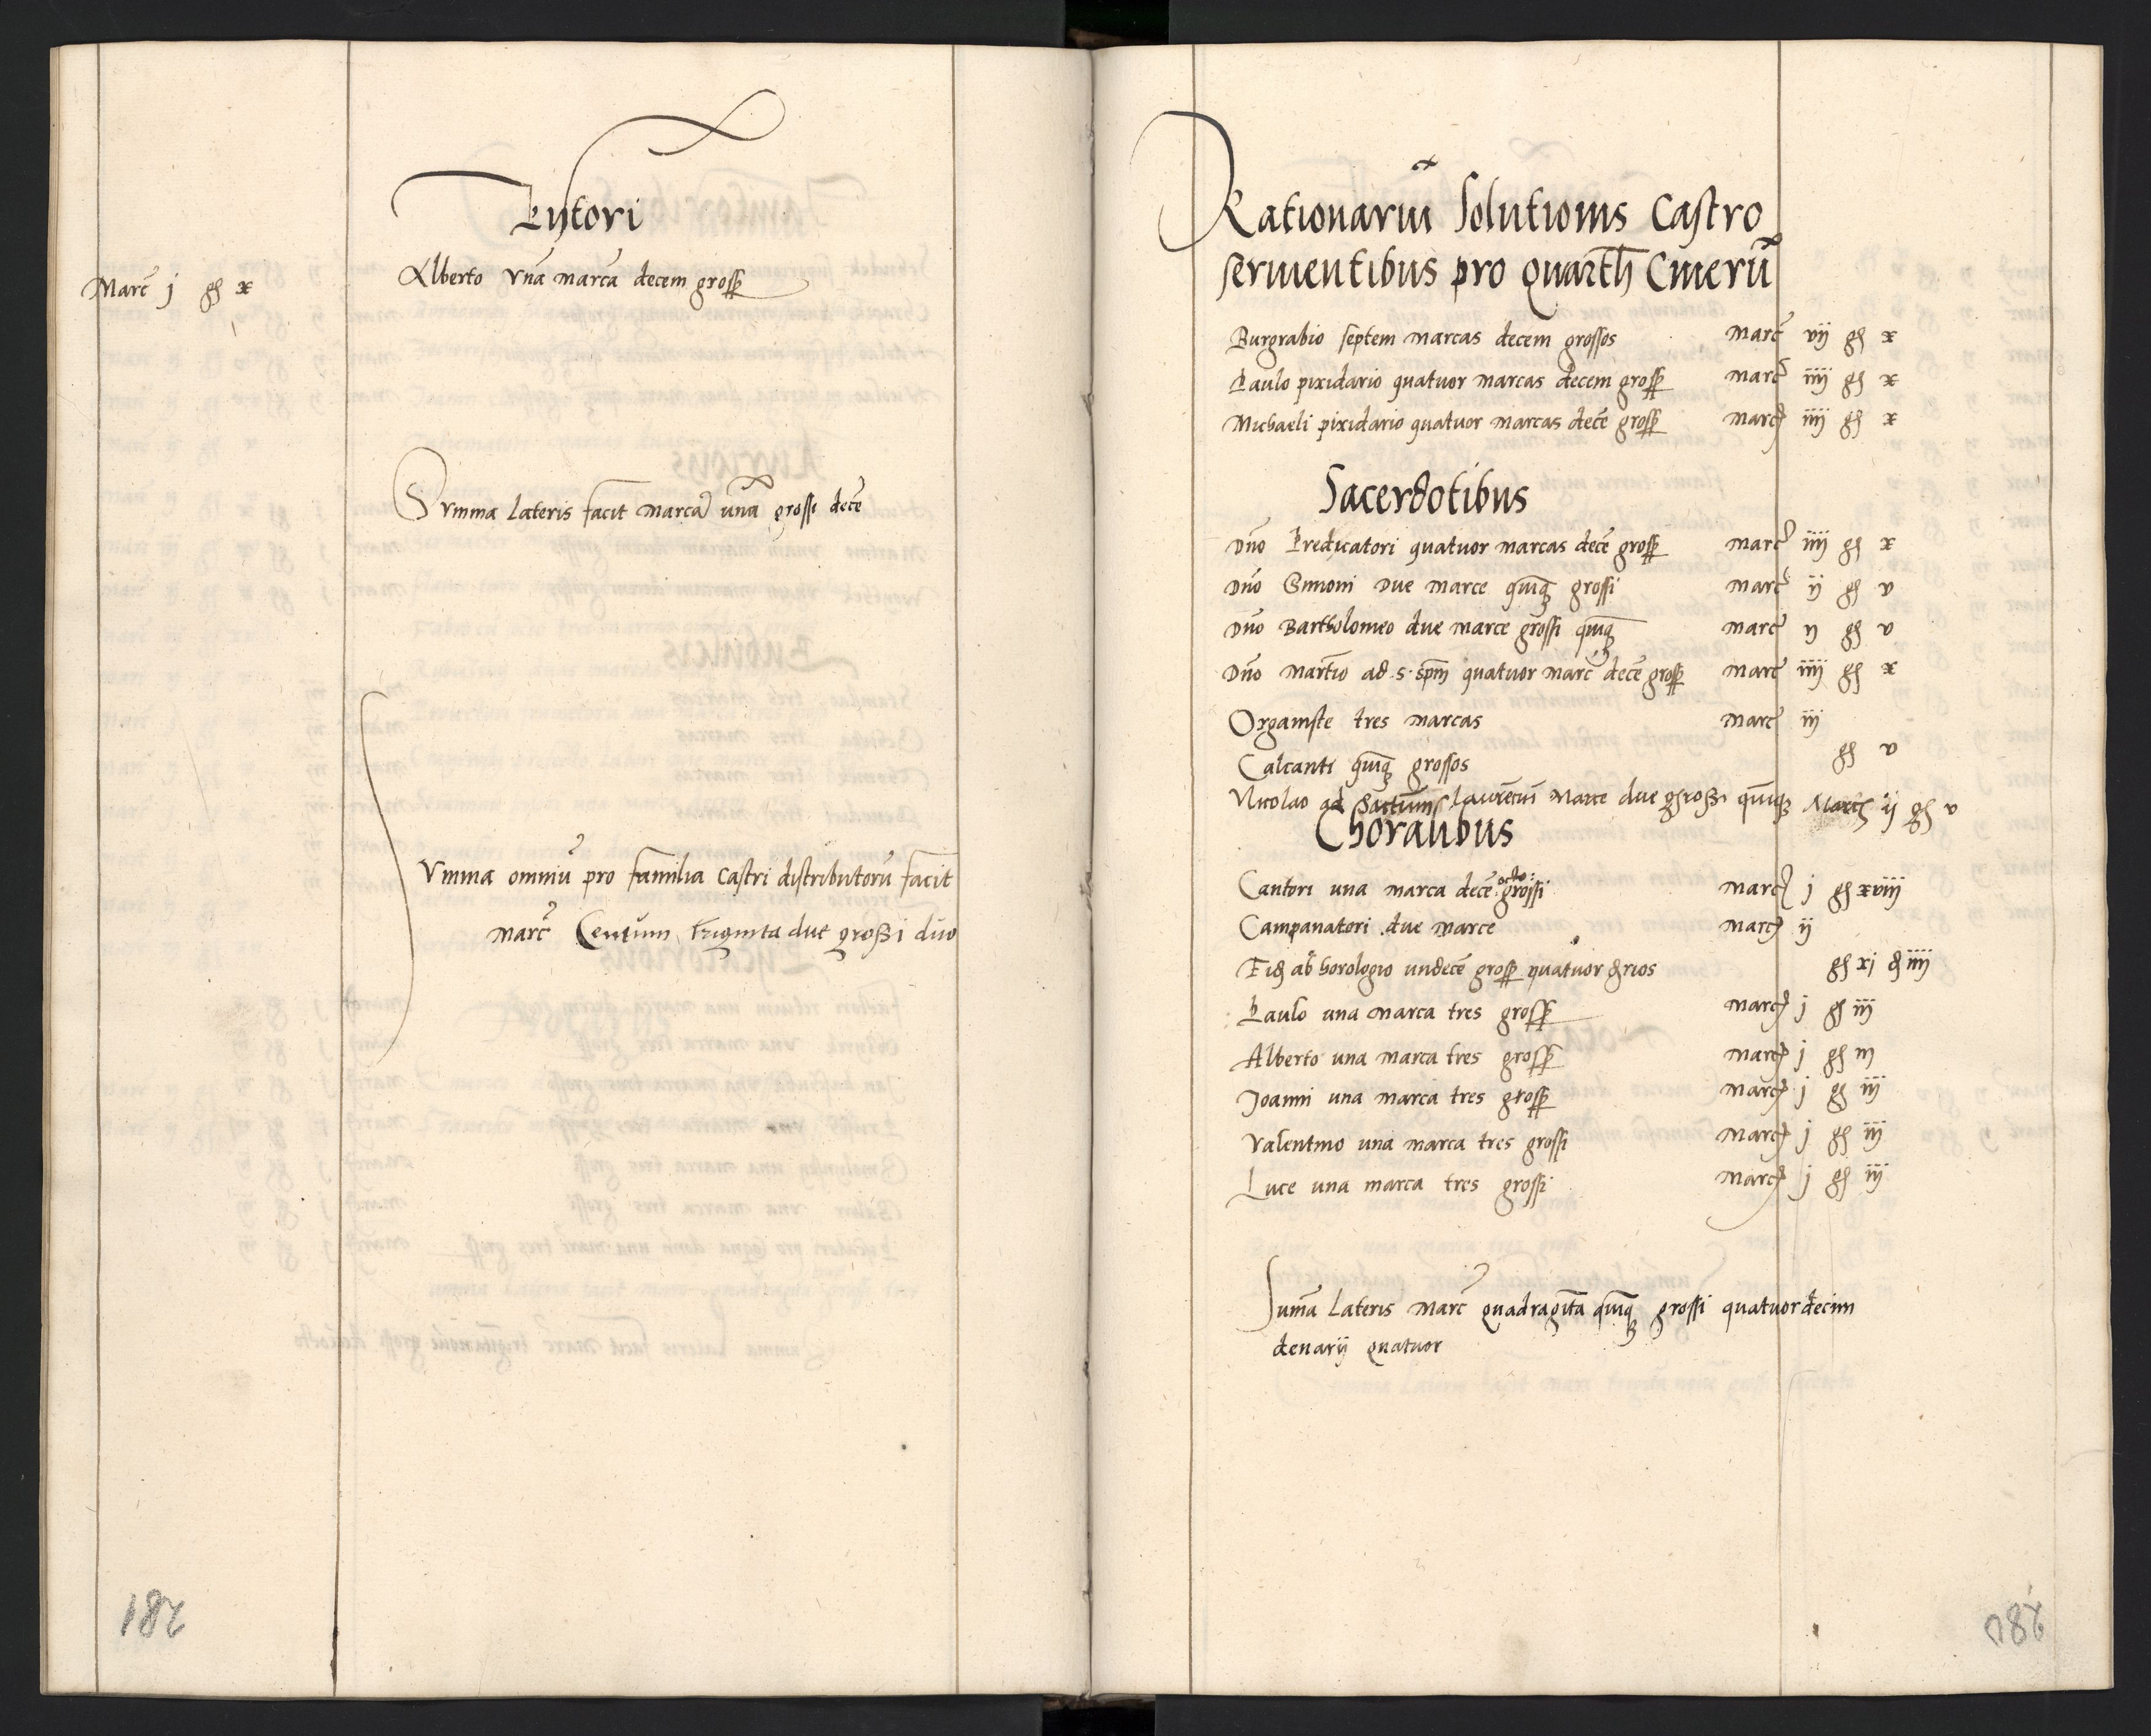 Tytori
Alberto vnā marcā decem gross
Marc j gs x
Summa Lateris facit Marcā unā grossi decē
Summa omniū pro familia castri distributorū facit
marc Centum triginta due grossi duo
181
Rationariū Solutionis Castro
seruientibus pro quarth Cinerū
Burgrabio septem marcas decem grossos Marc vij gs x
Paulo pixidario quatuor marcas decem gross marc iiij gs x
Michaeli pixidario quatuor marcas decē gross marc iiij gs x
Sacerdotibus
Dno Predicatori quatuor marcas decē gross marc iiij gs x
Dno Simoni due marce quiqz grossi marc ij gs v
Dno Bartholomeo due marce grossi quiqz marc ij gs v
Dno Martīo ad s. spm quatuor marc decē gross marc iiij gs x
Organiste tres marcas marc iij
Calcanti quiqz grossos gs v
Nicolao ad Sactum laurētiū Marce due grossi quiqz Marc ij gs v
Choralibus
Cantori una marca decē octo grossi marc j gs xviij
Campanatori due marce marc ij
Eid ab horologio undecē gross quatuor drios gs xj d iiij
Paulo una marca tres gross marc j gs iij
Alberto una marca tres gross marc j gs iij
Joanni una marca tres gross marc j gs iij
Valentino una marca tres grossi marc j gs iij
Luce una marca tres grossi marc j gs iij
Suma Lateris Marc quadragīta quiqz grossi quatuordecim
denarij quatuor